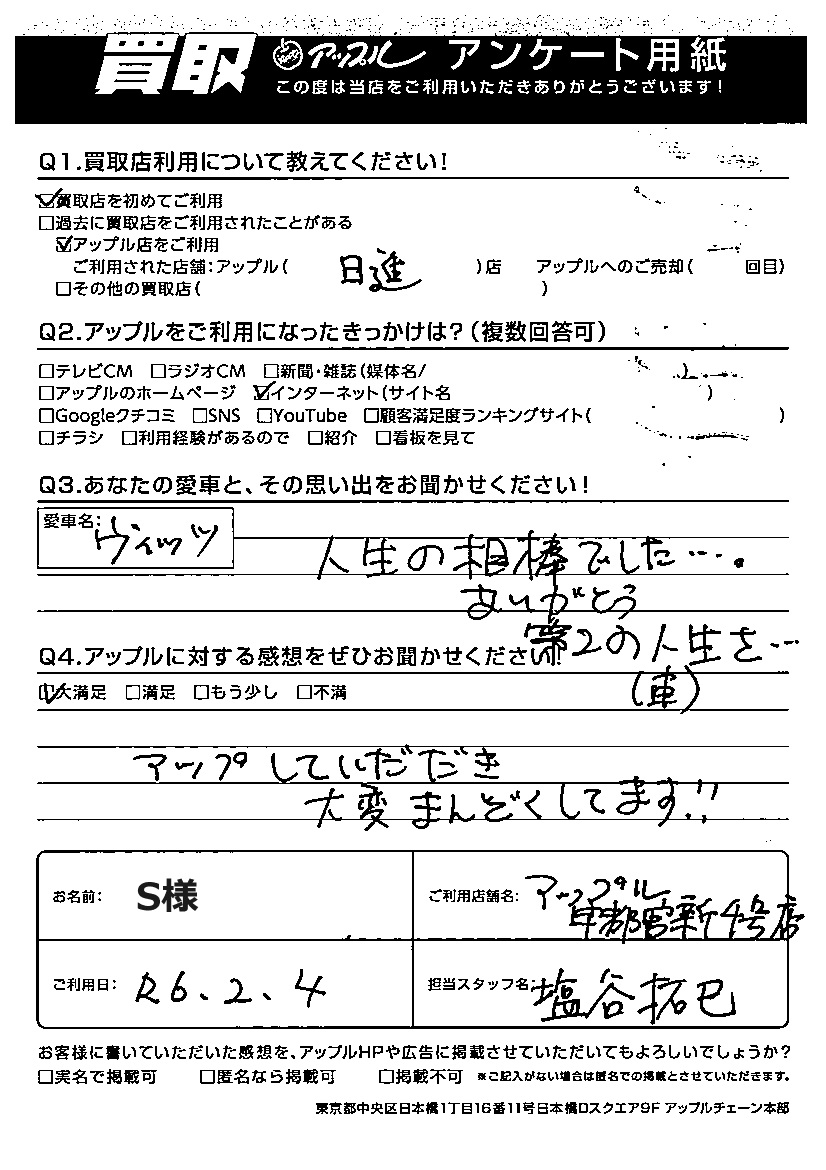 買取 アップル アンケート用紙
この度は当店をご利用いただきありがとうございます！
Q1.買取店利用について教えてください！
☑買取店を初めてご利用
□過去に買取店をご利用されたことがある
☑アップル店をご利用
ご利用された店舗：アップル（ 日進 ）店 アップルへのご売却（ 回目）
□その他の買取店（ ）
Q2.アップルをご利用になったきっかけは？（複数回答可）
□テレビCM □ラジオCM □新聞・雑誌（媒体名/ ）
□アップルのホームページ ☑インターネット（サイト名 ）
□Googleクチコミ □SNS □YouTube □顧客満足度ランキングサイト（ ）
□チラシ □利用経験があるので □紹介 □看板を見て
Q3.あなたの愛車と、その思い出をお聞かせください！
愛車名：ヴィッツ
人生の相棒でした…。
ありがとう
第2の人生を…
（車）
Q4.アップルに対する感想をぜひお聞かせください！
☑大満足 □満足 □もう少し □不満
アップしていだだき
大変まんぞくしてます!!
お名前： S様
ご利用店舗名：アップル
宇都宮新4号店
ご利用日： R6.2.4
担当スタッフ名：塩谷拓巳
お客様に書いていただいた感想を、アップルHPや広告に掲載させていただいてもよろしいでしょうか？
□実名で掲載可 □匿名なら掲載可 □掲載不可 ※ご記入がない場合は匿名での掲載とさせていただきます。
東京都中央区日本橋1丁目16番11号日本橋ロスクエア9F アップルチェーン本部